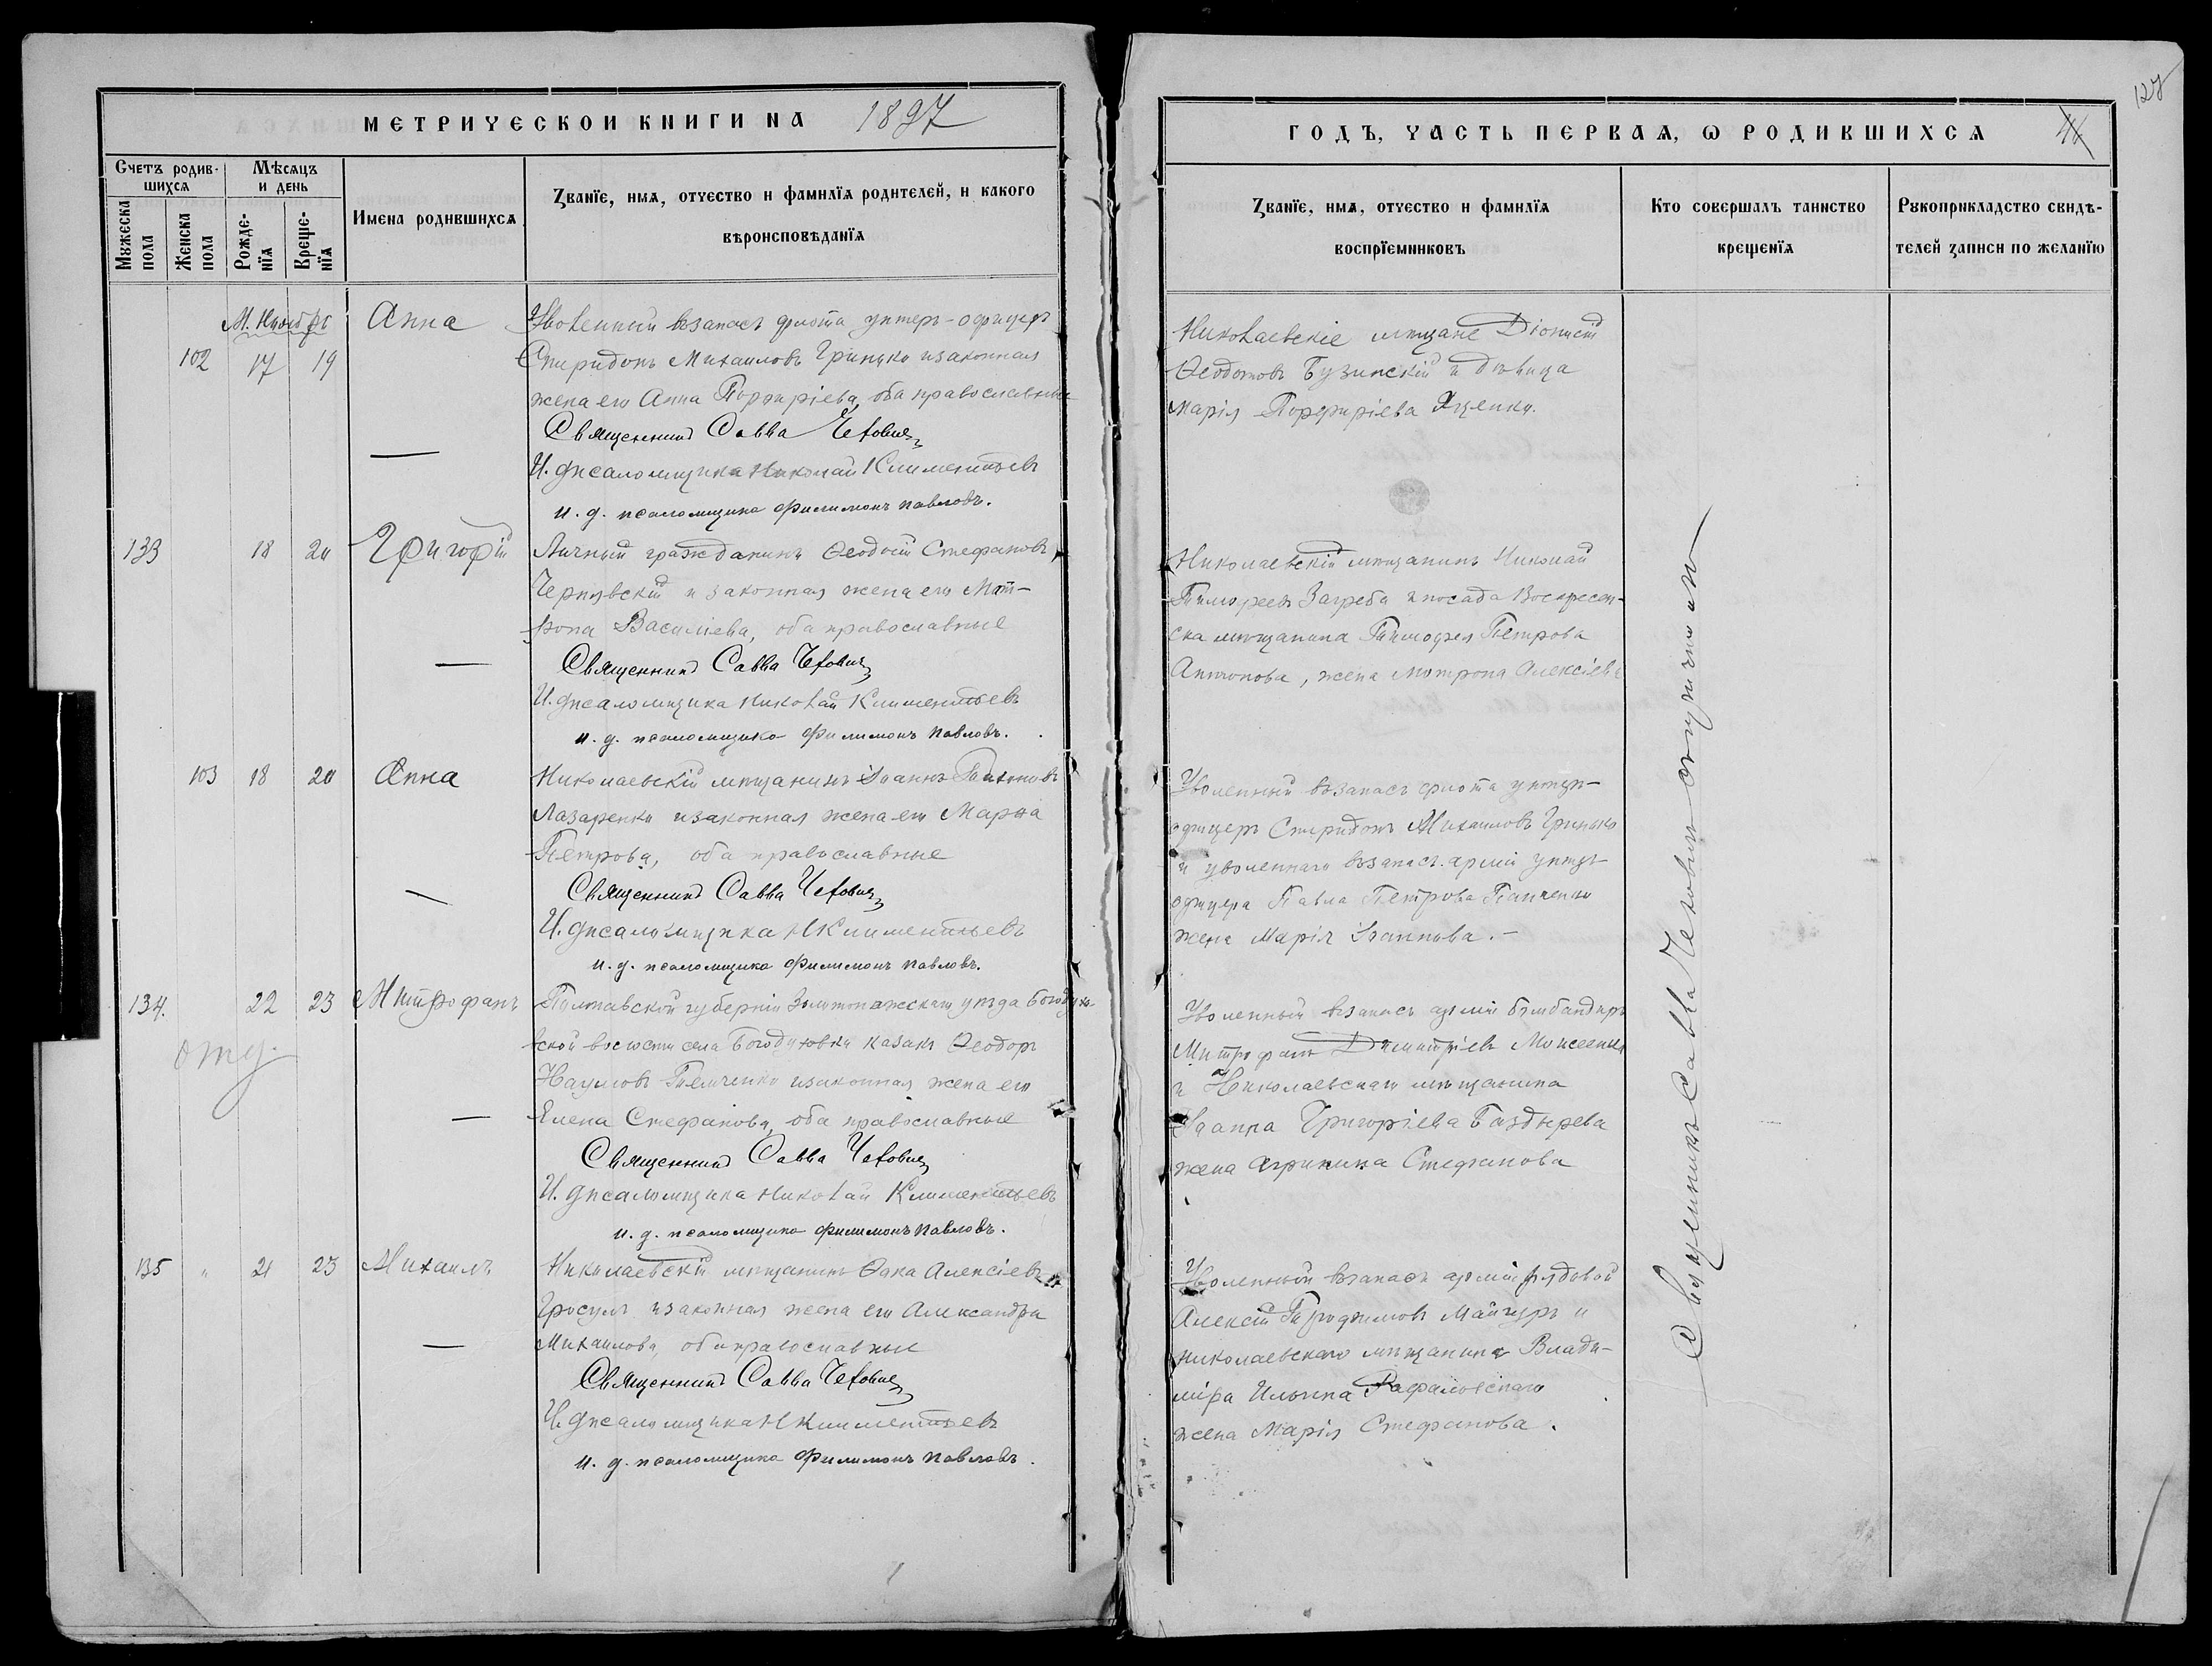 МЕТРИЧЕСКОИ КНИГИ НА 1897
Счетъ родив-
шихся
Мѣсяцъ
и день
Мужеска
пола
Женска
пола
Рожде-
нїя
Креще-
нїя
Имена родившихся
Званїе, имя, отчество и фамилїя родителей, и какого
вѣроисповѣданїя
М. Ноябрь
102 17 19 Анна
Уволенный въ запасъ флота унтеръ-офицеръ
Спиридонъ Михаиловъ Гринько и законная
жена его Анна Порфиріева, оба православные
Священникъ Савва Чехович
И. д. псаломщика Николай Климентьевъ
и. д. псаломщика Филимонъ Павловъ.
133 18 20 Григорій
Личный гражданинъ Ѳеодосій Стефановъ
Чернявскій и законная жена его Мат-
рона Василіева, оба православные
Священникъ Савва Чехович
И. д. псаломщика Николай Климентьевъ
и. д. псаломщика Филимонъ Павловъ.
103 18 20 Анна
Николаевскій мѣщанинъ Іоаннъ
Лазаренко и законная жена его Марѳа
Петрова, оба православные
Священникъ Савва Чехович
И. д. псаломщика Н Климентьевъ
и. д. псаломщика Филимонъ Павловъ.
134. 22 23 Митрофанъ
Полтавской губерніи Золотоношскаго уѣзда Богодухо-
вской волости села Богодуховки казакъ Ѳеодоръ
Наумовъ и законная жена его
Елена Стефанова, оба православные
Священникъ Савва Чехович
И. д. псаломщика Николай Климентьевъ
и. д. псаломщика Филимонъ Павловъ.
135 " 21 23 Михаилъ
Николаевскій мѣщанинъ Ѳака Алексіевъ
Гросулъ и законная жена его Александра
Михаилова, оба православные
Священникъ Савва Чехович
И. д. псаломщика Н Климентьевъ
и. д. псаломщика Филимонъ Павловъ.
127
ГОДЪ, ЧАСТЬ ПЕРВАЯ, Ѡ РОДИВШИХСЯ
Званїе, имя, отчество и фамилїя
воспрїемниковъ
Кто совершалъ таинство
крещенїя
Рукоприкладство свидѣ-
телей записи по желанїю
Николаевскіе мѣщане Діонисій
Ѳеодотовъ Бузинскій и дѣвица
Марія Порфиріева Яценко.
Николаевскій мѣщанинъ Николай
Тимофеевъ Загреба и посада Воскресен-
ска мѣщанина Тимофея Петрова
Антонова, жена Матрона Алексіева
Уволенный въ запасъ флота унтеръ-
офицеръ Спиридонъ Михаиловъ Гринько
и уволеннаго въ запасъ арміи унтеръ-
офицера Павла Петрова Панченко
жена Марія Іоаннова.-
Уволенный въ запасъ арміи бомбандиръ
Митрофанъ Димитріевъ Моисеенко
и Николаевскаго мѣщанина
Іоанна Григоріева Баздырева
жена Агрипина Стефанова
Уволенный въ запасъ арміи рядовой
Алексій Майчуръ и
Николаевскаго мѣщанина Влади-
міра Ильина Рафаловскаго
жена Марія Стефанова.
Священникъ Савва Чеховичъ